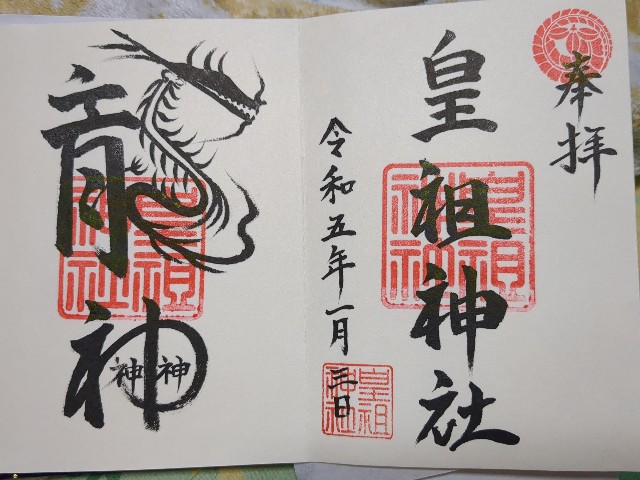 奉拝
皇祖神社
皇祖神社
令和五年一月三日
皇祖神社
龍神
神神
皇祖神社